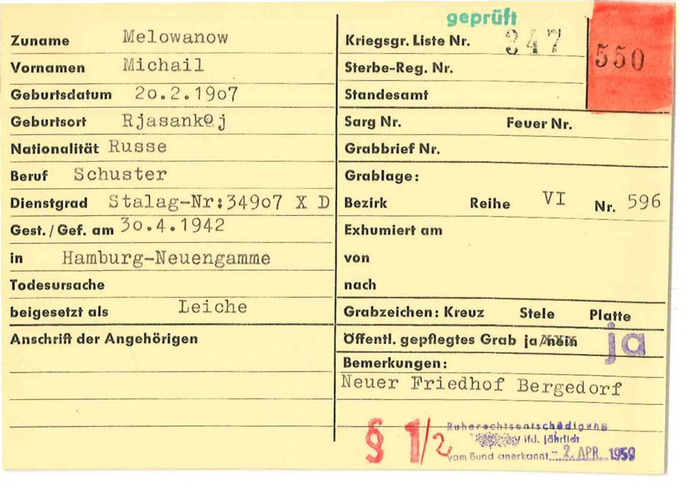 geprüft
550
Zuname Melowanow
Vornamen Michail
Geburtsdatum 2o.2.19o7
Geburtsort Rjasank@j
Nationalität Russe
Beruf Schuster
Dienstgrad Stalag-Nr:349o7 X D
Gest./Gef. am 3o.4.1942
in Hamburg-Neuengamme
Todesursache
beigesetzt als Leiche
Anschrift der Angehörigen
Kriegsgr. Liste Nr. 347
Sterbe-Reg. Nr.
Standesamt
Sarg Nr. Feuer Nr.
Grabbrief Nr.
Grablage:
Bezirk Reihe VI Nr. 596
Exhumiert am
von
nach
Grabzeichen: Kreuz Stele Platte
Öffentl. gepflegtes Grab ja/nein ja
Bemerkungen:
Neuer Friedhof Bergedorf
§ 1/2
Ruherechtsentschädigung
lfd. jährlich
vom Bund anerkannt - 2. APR. 1959